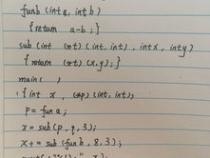 funb (int a, int b)
{return a-b;}
sub (int (*t) (int, int), int x, int y)
{return (*t) (x,y);}
main( )
{int x, (*p)(int, int);
p = fun a;
x = sub(p, 9, 3);
x += sub (fun b, 8, 3);